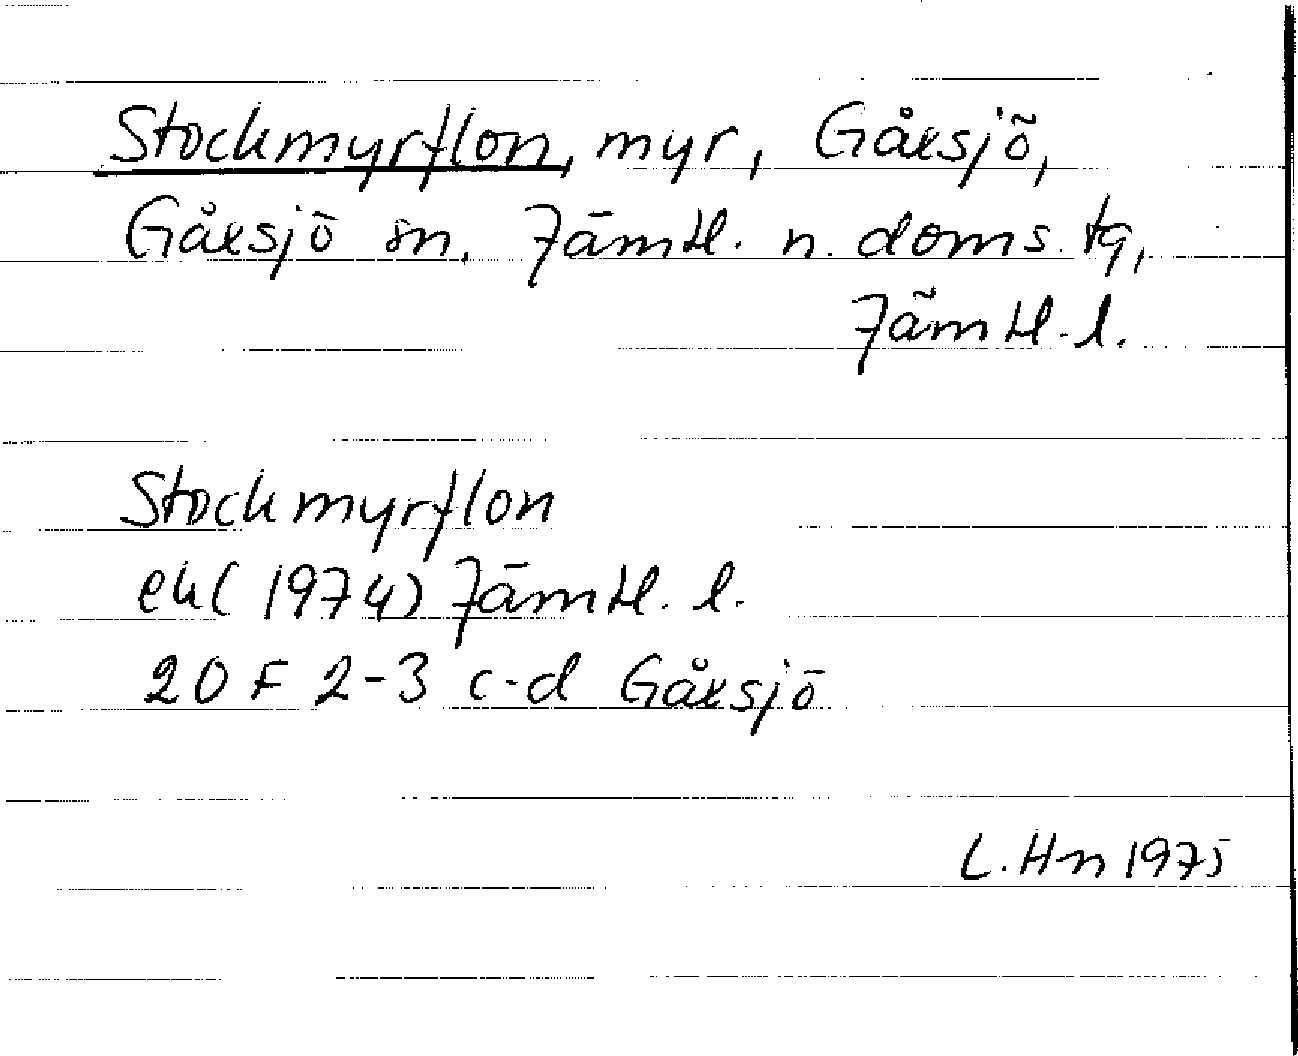 Stockmyrflon, myr, Gåxsjö,
Gåxsjö sn, Jämtl. n. doms. tg,
Jämtl. l.
Stockmyrflon
ek (1974) Jämtl. l.
20 F 2-3 c-d Gåxsjö
L. Hn 1975